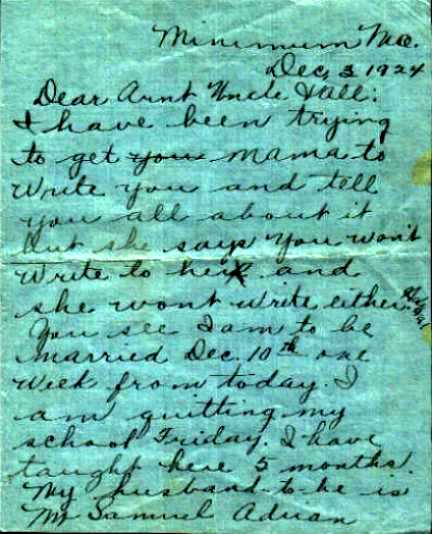 Minimum Mo.
Dec. 3 1924
Dear Aunt Uncle & all:
I have been trying
to get your Mama to
write you and tell
you all about it
but she says you won't
write to her and
she wont write either.
You see I am to be
married Dec. 10th one
week from today. I
am quitting my
school Friday. I have
taught here 5 months.
My husband-to-be is
Mr Samuel Aduan